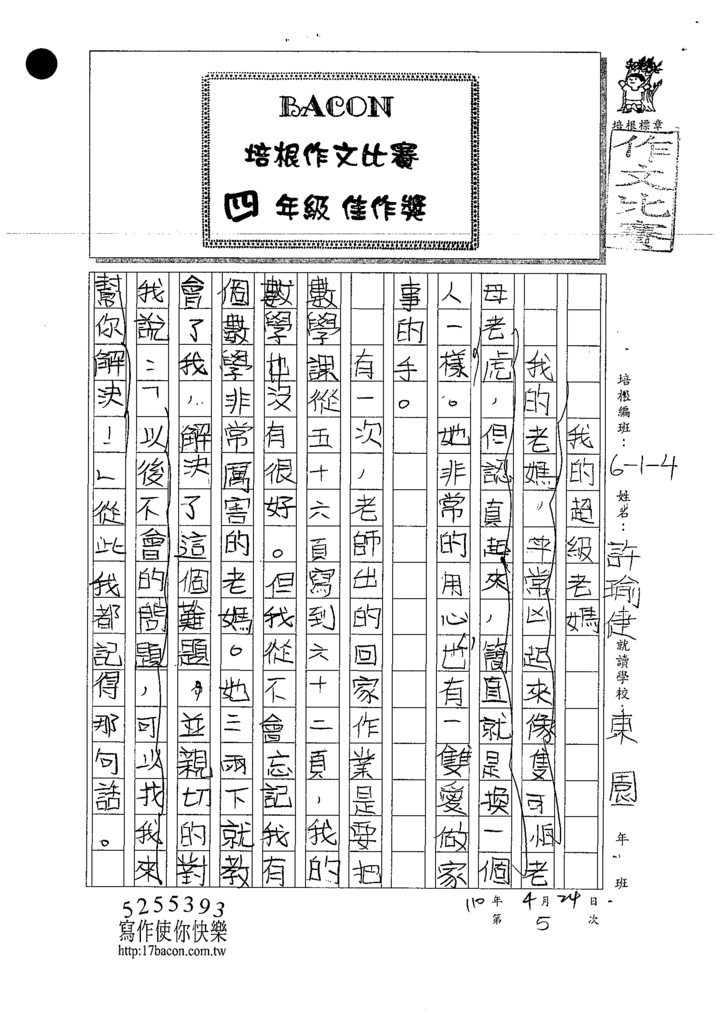 BACON
培根作文比賽
四年級 佳作獎
培根標章
作文比賽
培根編班：6-1-4 姓名：許瑜倢 就讀學校：東園 年 班
110年4月24日
第5次
我的超級老媽
我的老媽，平常凶起來像隻可怕老
母老虎，但認真起來，簡直就是換一個
人一樣。她非常的用心，也有一雙愛做家
事的手。
有一次，老師出的回家作業是要把
數學課從五十六頁寫到六十二頁，我的
數學也沒有很好。但我從不會忘記我有
個數學非常厲害的老媽。她三兩下就教
會了我，解決了這個難題，並親切的對
我說：「以後不會的問題，可以找我來
幫你解決！」從此我都記得那句話。
5255393
寫作使你快樂
http:17bacon.com.tw